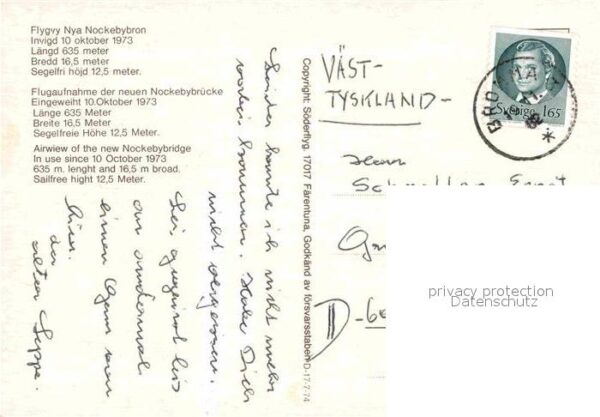 Flygvy Nya Nockebybron
Invigd 10 oktober 1973
Längd 635 meter
Bredd 16,5 meter
Segelfri höjd 12,5 meter.
Flugaufnahme der neuen Nockebybrücke
Eingeweiht 10.Oktober 1973
Länge 635 Meter
Breite 16,5 Meter
Segelfreie Höhe 12,5 Meter.
Airwiew of the new Nockebybridge
In use since 10 October 1973
635 m. lenght and 16,5 m broad.
Sailfree hight 12,5 Meter.
Leider konnte ich nicht mehr
vorbei kommen. Habe Dich
nicht vergessen.
Sei gegrüsst bis
ein andermal
einen Gruss von
hier.
der
alten Seppe.
Copyright: Söderflyg, 17017 Färentuna, Godkänd av försvarsstaben D-17-7-74
VÄST-
TYSKLAND-
Herrn
D-
BROMMA
Sverige 165
privacy protection
Datenschutz